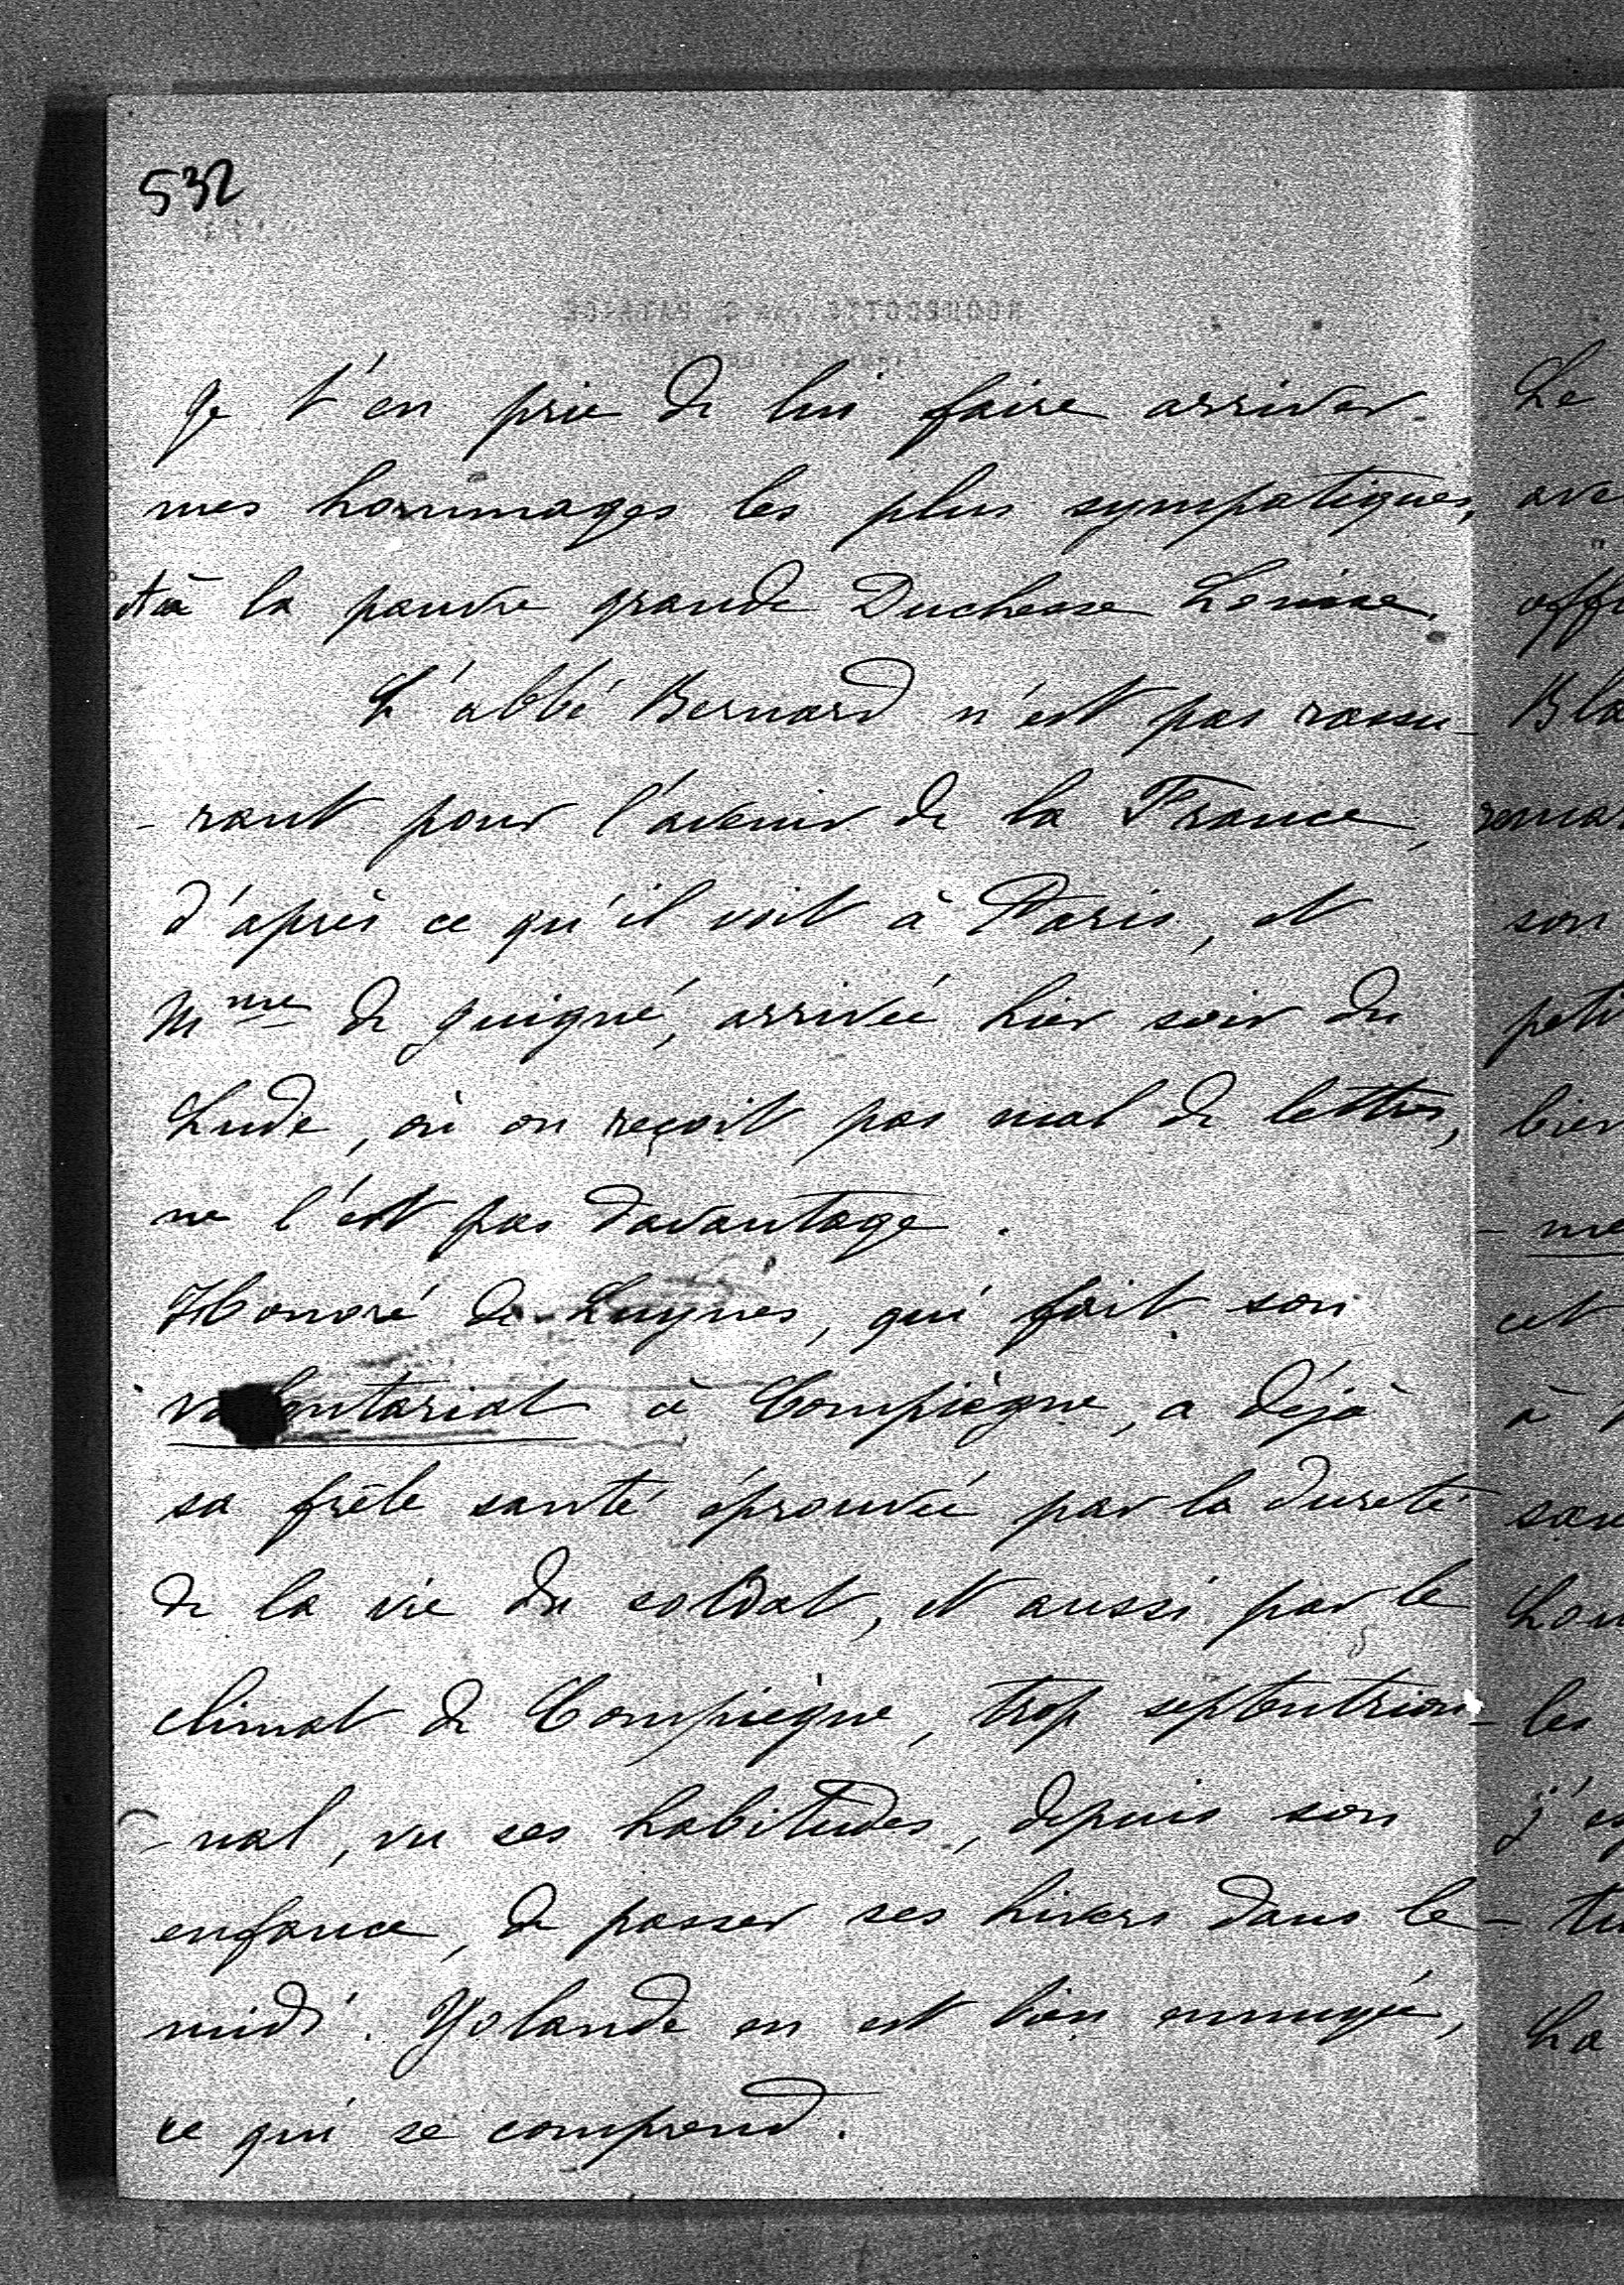 532
Je t'en prie de lui faire arriver
mes hommages les plus sympatiques,
et à la pauvre grande Duchesse Louise.
L'abbé Bernard n'est pas rassu-
-rant pour l'avenir de la France,
d'après ce qu'il voit à Paris, et
Mme de guigné, arrivée hier soir du
Lude, où on reçoit pas mal de lettres,
ne l'est pas davantage.
Honoré de Luynes, qui fait son
volontariat à Compiègne, a déjà
sa frêle santé éprouvée par la dureté
de la vie du soldat, et aussi par le
climat de Compiègne, trop septentrion-
-nal, vu ses habitudes, depuis son
enfance, de passer ses hivers dans le
midi. Yolande en est bien ennuyée,
ce qui se comprend.
Le
son
à
les
La